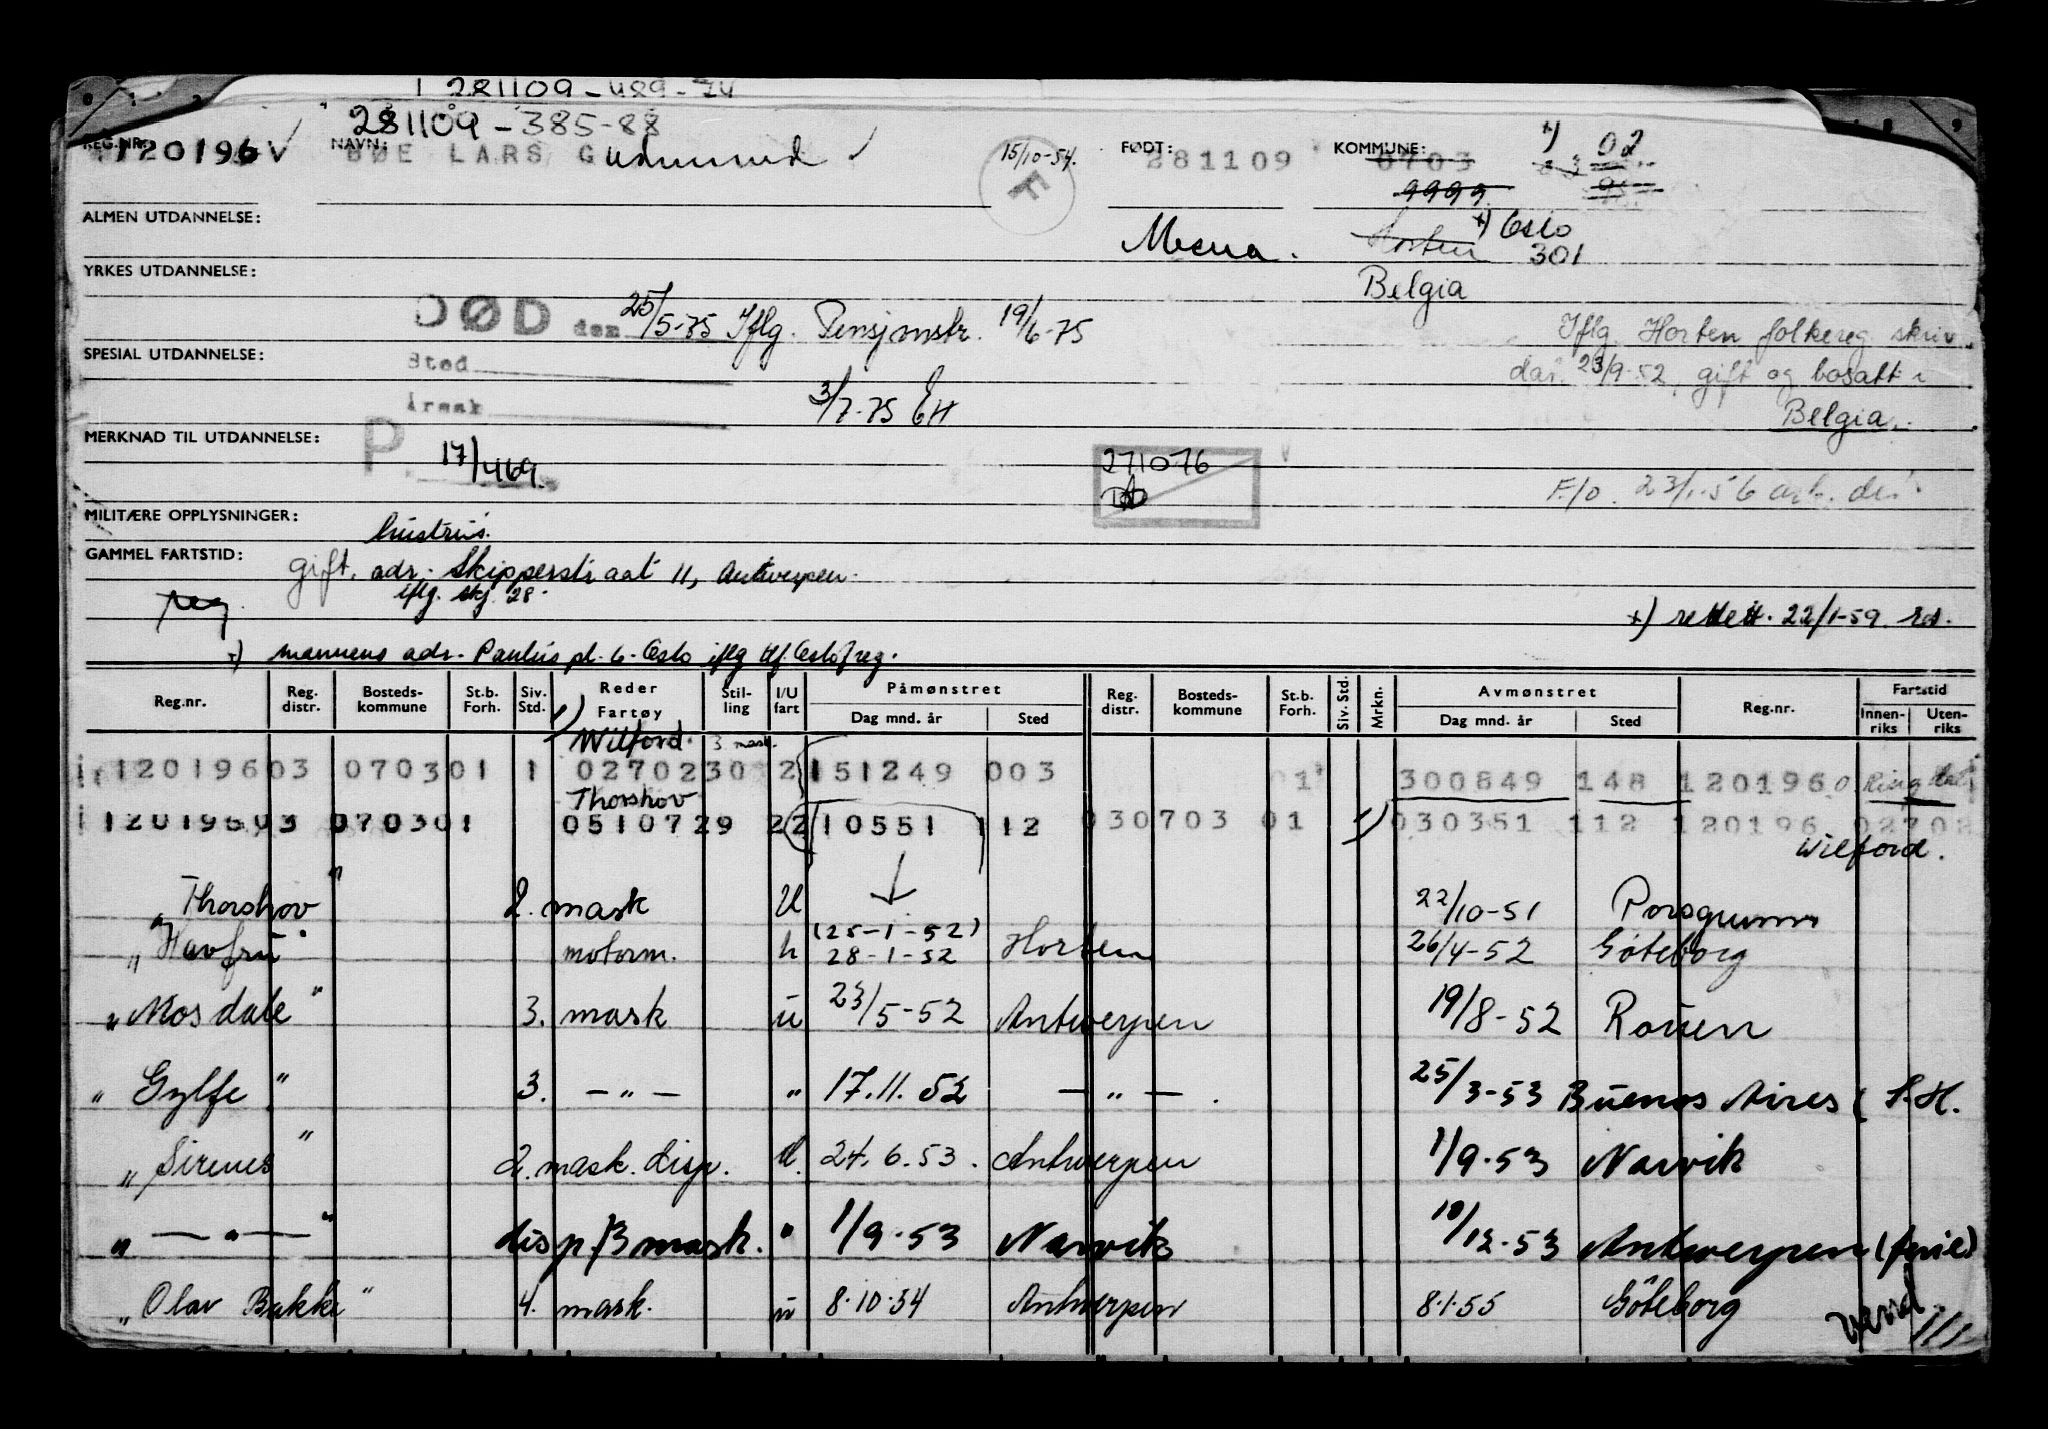 281109-489-74
281109-385-88
REG.NR: 120196 V NAVN: BØE LARS Gudmund ✓ 15/10-54. F FØDT: 281109 KOMMUNE: 0703 x) 02
9999
ALMEN UTDANNELSE: Horten x) Oslo
301
YRKES UTDANNELSE: Belgia
DØD den 25/5-75 Iflg. Pensjonstr. 19/6-75
Iflg. Horten folkereg skriv
SPESIAL UTDANNELSE: Sted
dat. 23/9-52, gift og bosatt i
Årsak 3/7-75 EH Belgia.
MERKNAD TIL UTDANNELSE: P.
17/469. 271076
F/o. 23/1-56
MILITÆRE OPPLYSNINGER:
hustrus.
GAMMEL FARTSTID: gift. adr. Skipperstraat 11, Antwerpen.
iflg. skj. 28
reg. x) rettet. 22/1-59
x) mannens adr. Paulus pl. 6. Oslo iflg tlf. Oslo freg.
Reg.nr. Reg. distr. Bosteds-kommune St.b. Forh. Siv. Std. Reder Fartøy Stil-ling I/U fart Påmønstret Dag mnd. år Sted Reg. distr. Bosteds-kommune St.b. Forh. Siv. Std. Mrkn. Avmønstret Dag mnd. år Sted Reg.nr. Fartstid Innen-riks Uten-riks
1) Wilford. 3 mask.
12019603 070301 1 02702 30 2 151249 003 01 300849 148 120196 0
Thorshov
12019603 070301 0510729 22 10551 112 030703 01 1) 030351 112 120196 02702
Wilford.
"Thorshov" 2. mask U 22/10-51 Porsgrunn
(25-1-52)
"Havfru" motorm. u 28-1-52 Horten 26/4-52 Göteborg
"Mosdale" 3. mask u 23/5-52 Antwerpen 19/8-52 Rouen
"Gylfe" 3. — " — " 17.11.52 — " — . 25/3-53 Buenos Aires ( S.H.
"Sirenes" 2. mask. disp. U. 24.6.53. Antwerpen 1/9.53 Narvik
" — " — " disp./3 mask. " 1/9.53 Narvik 10/12-53 Antwerpen (ferie)
"Olav Bakke" 4. mask. u 8.10.54 Antwerpen 8.1.55 Göteborg
vend